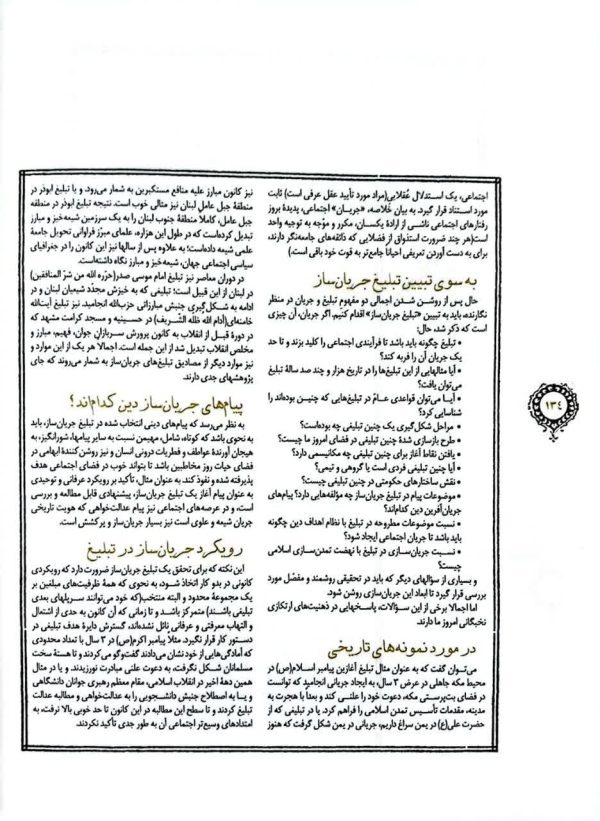 اجتماعی، یک استدلال عُقلایی(مراد مورد تأیید عقل عرفی است) ثابت
مورد استناد قرار گیرد. به بیان خلاصه، «جریان» اجتماعی، پدیدۀ بروز
رفتارهای اجتماعی ناشی از ارادۀ یکسان، مکرر و موّجه به توجیه واحد
است(هر چند ضرورت استذواق از فضلایی که ذائقه‌های جامعه‌نگر دارند،
برای به دست آوردن تعریفی احیاناً جامع‌تر به قوت خود باقی است.)
به سوی تبیین تبلیغ جریان‌ساز
حال پس از روشن شدن اجمالی دو مفهوم تبلیغ و جریان در منظر
نگارنده، باید به تبیین «تبلیغ جریان‌ساز» اقدام کنیم. اگر جریان، آن چیزی
است که ذکر شد، حال:
• تبلیغ چگونه باید باشد تا فرآیندی اجتماعی را کلید بزند و تا حد
یک جریان آن را فربه کند؟
• آیا مثالهایی از این تبلیغ‌ها را در تاریخ هزار و چند صد سالۀ تبلیغ
می‌توان یافت؟
• آیـا می‌توان قواعدی عامّ در تبلیغ‌هایی که چنیـن بوده‌اند را
شناسایی کرد؟
• مراحل شکل‌گیری یک چنین تبلیغی چه بوده‌است؟
• طرح بازسازی شدۀ چنین تبلیغی در فضای امروز ما چیست؟
• یافتن نقاط آغاز برای چنین تبلیغی چه مکانیسمی دارد؟
• آیا چنین تبلیغی فردی است یا گروهی و تیمی؟
• نقش ساختارهای حکومتی در چنین تبلیغی چیست؟
• موضوعات پیام در تبلیغ جریان‌ساز چه مؤلفه‌هایی دارد؟ پیام‌های
جریان‌آفرین دین کدام‌اند؟
• نسبت موضوعات مطروحه در تبلیغ با نظام اهداف دین چگونه
باید باشد تا جریان اجتماعی ایجاد شود؟
• نسـبت جریان‌سـازی در تبلیغ با نهضت تمدن‌سازی اسلامی
چیست؟
و بسیاری از سؤالهای دیگر که باید در تحقیقی روشمند و مفصّل مورد
بررسی قرار گیرد تا ابعاد این جریان‌سازی روشن شود.
اما اجمالا برخی از این سـؤالات، پاسـخهایی در ذهنیت‌های ارتکازی
نخبگانی امروز ما دارند.
در مورد نمونه‌های تاریخی
می‌توان گفت که به عنوان مثال تبلیغ آغازین پیامبر اسـلام(ص) در
محیط مکه جاهلی در عرض ۳ سال، به ایجاد جریانی انجامید که توانست
در فضای بت‌پرستی مکه، دعوت خود را علنـی کند و بعداً با هجرت به
مدینه، مقدمات تأسیس تمدن اسلامی را فراهم کرد. یا در تبلیغی که از
حضرت علی(ع) در یمن سراغ داریم، جریانی در یمن شکل گرفت که هنوز
نیز کانون مبارز علیه منافع مستکبرین به شمار می‌رود. و یا تبلیغ ابوذر در
منطقۀ جبل عامل لبنان نیز مثالی خوب است. نتیجه تبلیغ ابوذر در منطقه
جبل عامل، کاملا منطقۀ جنوب لبنان را به یک سرزمین شیعه‌خیز و مبارز
تبدیل کرده‌است که در طول این هزاره، علمای مبرّز فراوانی تحویل جامعۀ
علمی شیعه داده‌است؛ به علاوه پس از سالها نیز این کانون را در جغرافیای
سیاسی اجتماعی جهان، شیعه‌خیز و مبارز نگاه داشته‌است.
در دوران معاصر نیز تبلیغ امام موسی صدر(حرّره الله من شرّ المنافقین)
در لبنان از این قبیل است؛ تبلیغی که به خیزش مجدّد شیعیان لبنان و در
ادامه به شکل‌گیری جنبش مبارزاتی حزب‌الله انجامید. نیز تبلیغ آیت‌الله
خامنه‌ای(أدام الله ظلّه الشّریف) در حسینیه و مسجد کرامت مشهد که
در دورۀ قبـل از انقلاب به کانون پرورش سـربازانِ جوان، فهیم، مبارز و
مخلص انقلاب تبدیل شد از این جمله است. اجمالاً هر یک از این موارد و
نیز موارد دیگر از مصادیق تبلیغ‌های جریان‌ساز به شمار می‌روند که جای
پژوهشهای جدی دارند.
پیام‌های جریان‌ساز دین کدام‌اند؟
به نظر می‌رسد که پیام‌های دینی انتخاب شده در تبلیغ جریان‌ساز، باید
به نحوی باشد که کوتاه، شامل، مهیمن نسبت به سایر پیامها، شورانگیز، به
هیجان آورندۀ عواطف و فطریات درونی انسان و نیز روشن کنندۀ ابهامی در
فضای حیات روز مخاطبین باشد تا بتواند خوب در فضای اجتماعی هدف
پذیرفته شده و نفوذ کند. به عنوان مثال، تأکید بر رویکرد عرفانی و توحیدی
به عنوان پیام آغاز یک تبلیغ جریان‌ساز، پیشنهادی قابل مطالعه و بررسی
است، و در عرصه‌های اجتماعی نیز پیام عدالت‌خواهی که هویت تاریخی
جریان شیعه و علوی است نیز بسیار جریان‌ساز و پرکشش است.
رویکرد جریان‌ساز در تبلیغ
این نکته که برای تحقق یک تبلیغ جریان‌ساز ضرورت دارد که رویکردی
کانونی در بدو کار اتخاذ شـود، به نحوی که همۀ ظرفیت‌های مبلغین بر
یک مجموعۀ محدود و البته منتخب(که خود می‌توانند سرپلهای بعدی
تبلیغی باشـند) متمرکز باشـد و تا زمانی که آن کانون به حدی از اشتعال
و التهاب معرفتی و عرفانی نائل نشده‌اند، گسترش دایرۀ هدف تبلیغی در
دستور کار قرار نگیرد. مثلا پیامبر اکرم(ص) در ۳ سال با تعداد محدودی
که آمادگی‌هایی از خود نشان می‌دادند گفت‌وگو می‌کردند و تا هستۀ سخت
مسلمانان شـکل نگرفت، به دعوت علنی مبادرت نورزیدند. و یا در مثال
همین دهۀ اخیر در انقلاب اسلامی، مقام معظم رهبری جوانان دانشگاهی
و یـا به اصطلاح جنبش دانشـجویی را به عدالت‌خواهی و مطالبه عدالت
تبلیغ کردند و تا سطح این مطالبه در این کانون تا حد خوبی بالا نرفت، به
امتدادهای وسیع‌تر اجتماعی آن به طور جدی تأکید نکردند.
۱۳۴